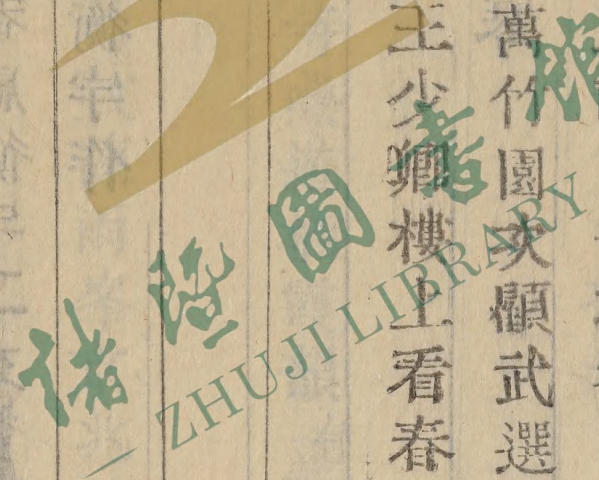 萬竹園次顧武選
王少卿樓上看春
諸暨圖書館
ZHUJI LIBRARY